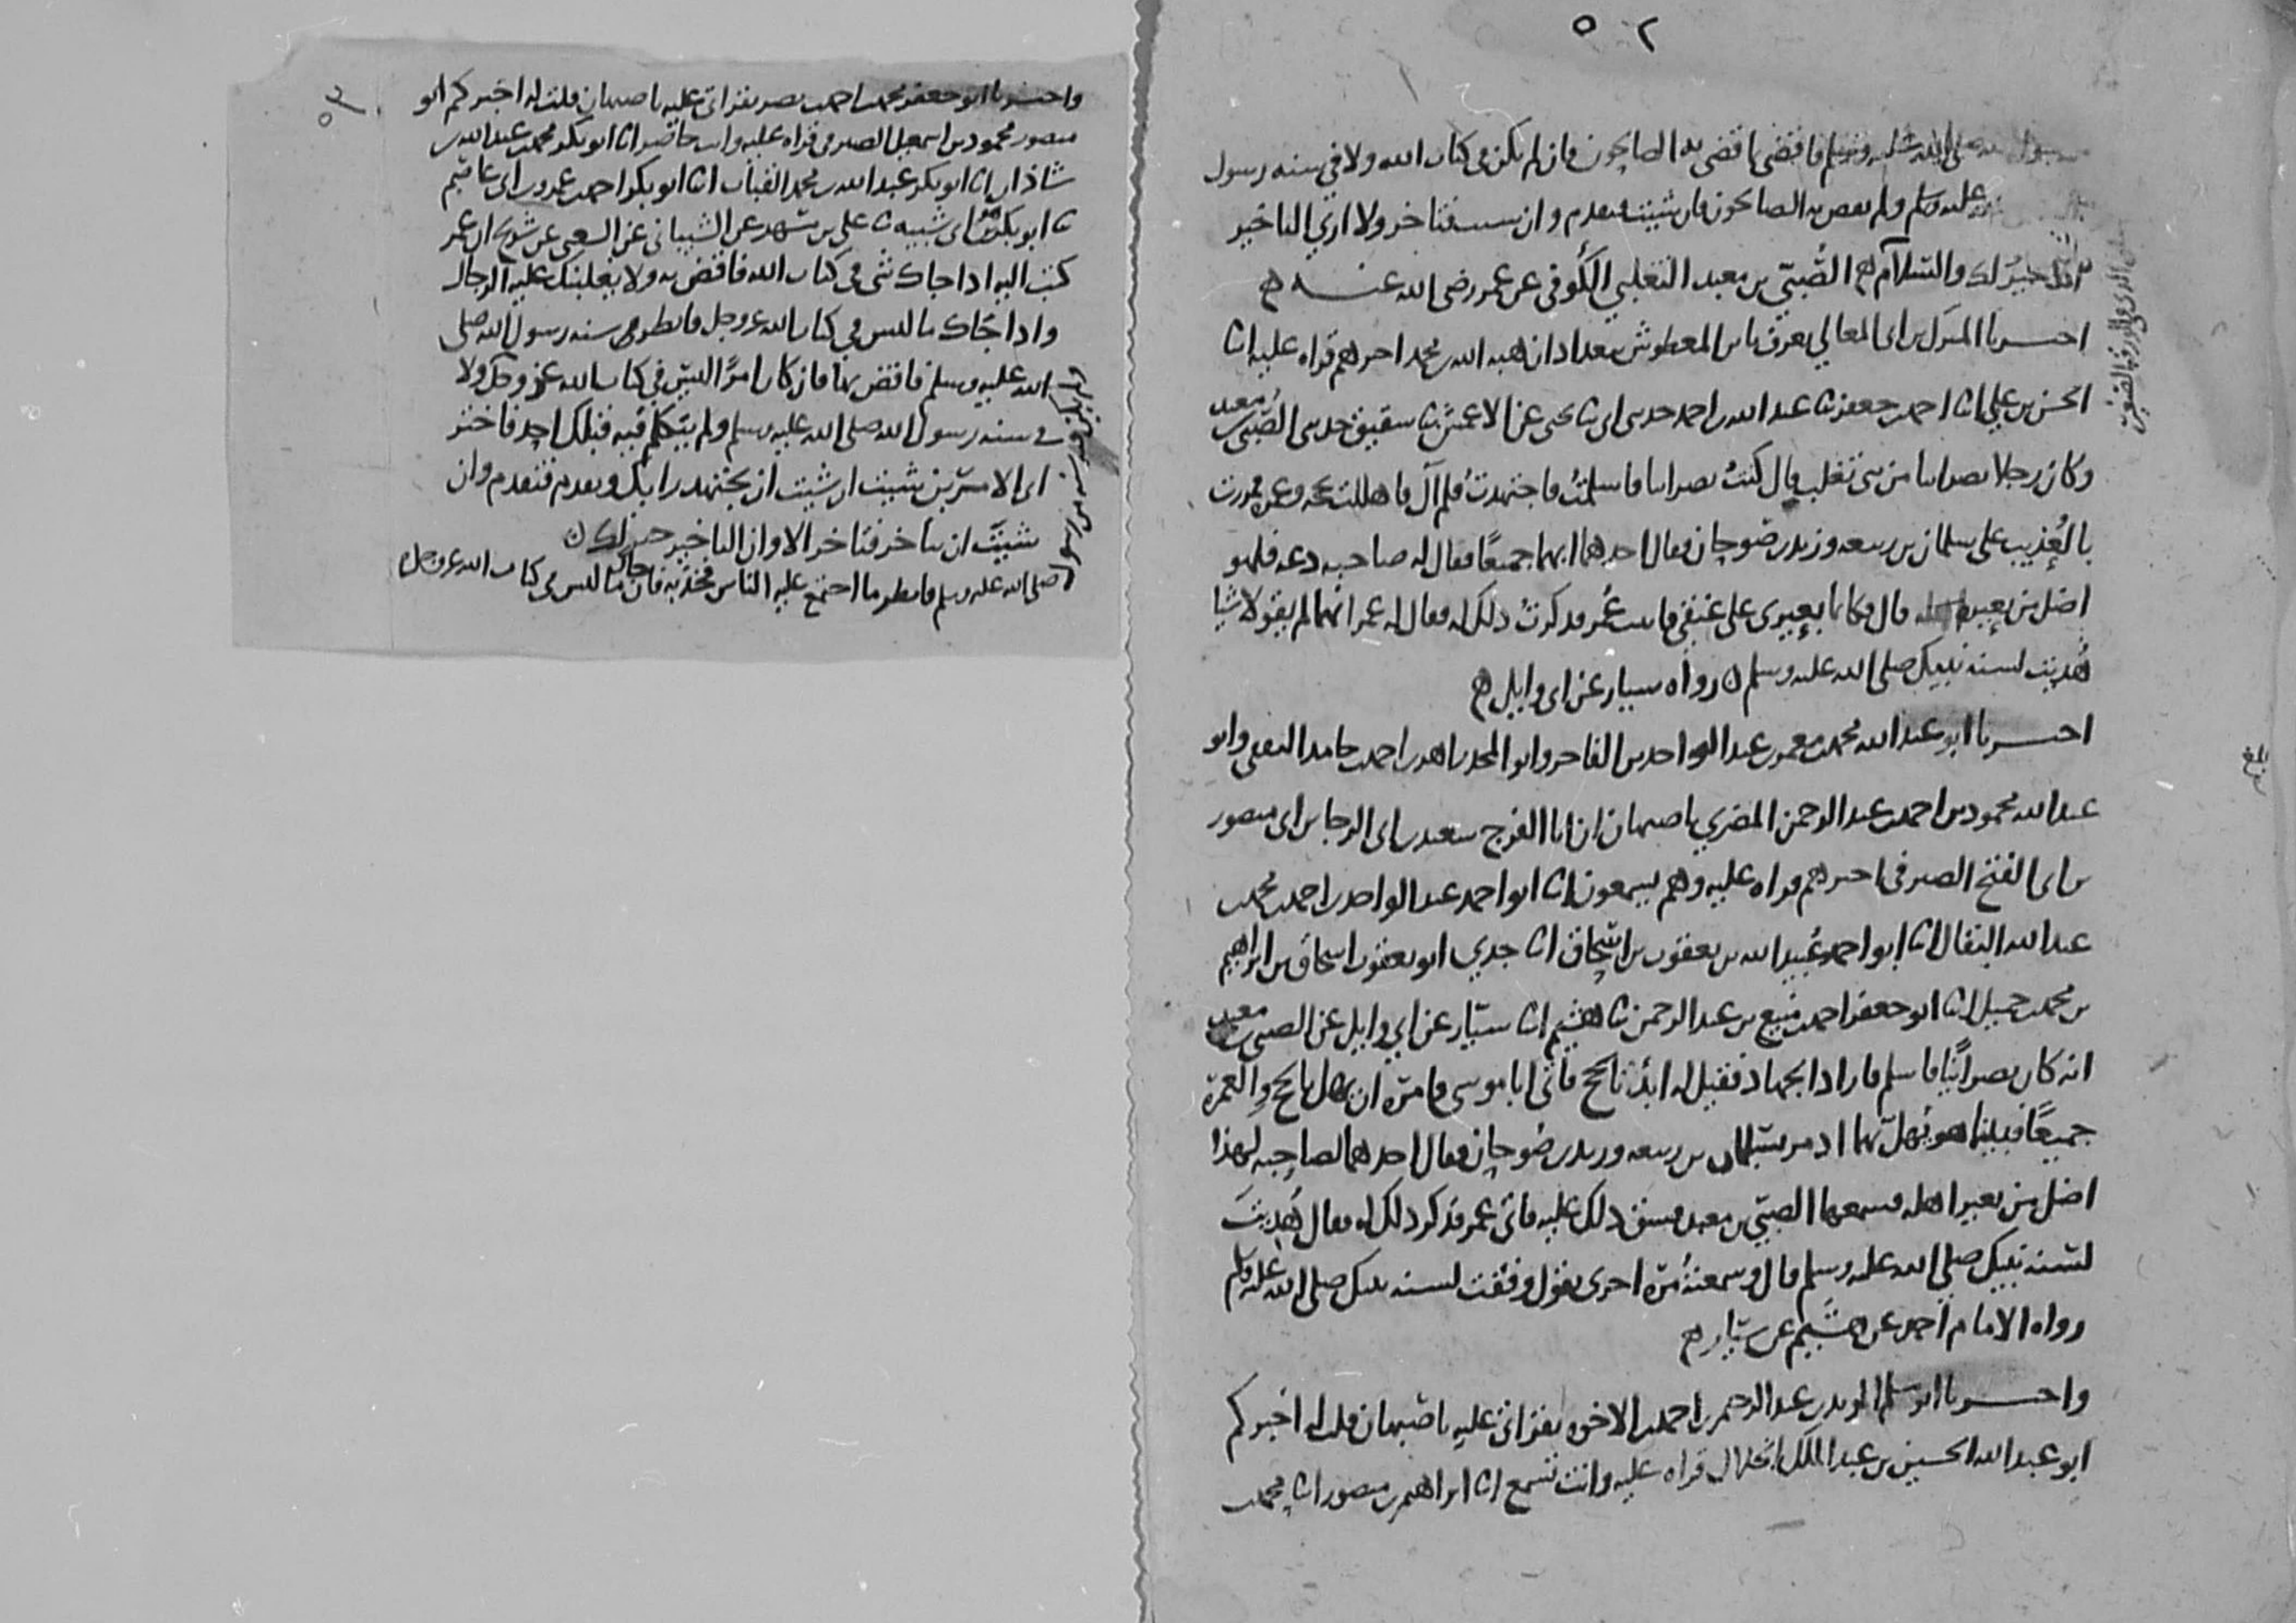 ٥٠٢
رسول الله صلى الله عليه وسلم فاقض بما قضى به الصالحون فان لم يكن في كتاب الله ولا في سنه رسول
عليه وسلم ولم يقض به الصالحون فان شيت فتقدم وان شيت فتاخر ولا ارى التاخير
الا خير لك والسلام الصُّبَيّ بن معبد التغلبي الكوفي عن عمر رضي الله عنه
اخبرنا المبارك بن ابي المعالي يعرف بابن المعطوش ببغداد ان هبه الله بن محمد اخبرهم قراه عليه انا
الحسن بن علي انا احمد بن جعفر ثنا عبد الله بن احمد حدثني ابي ثنا يحيى عن الاعمش ثنا شقيق حدثني الصُّبَي بن معبد
وكان رجلا نصرانيا من بني تغلب قال كنتُ نصرانيا فاسلمتُ فاجتهدتُ فلم آل فاهللت بحجه وعمره فمررت
بالعُذيب على سلمان بن ربيعه وزيد بن صوحان فقال احدهما ابهما جميعًا فقال له صاحبه دعه فلهو
اضل من بعيره قال فكانما بعيري على عنقي فاتيت عُمر فذكرتُ ذلك له فقال لي عمر انهما لم يقولا شيا
هُديت لسنه نبيك صلى الله عليه وسلم رواه سيار عن ابي وايل
اخبرنا ابو عبد الله محمد بن معمر بن عبد الواحد بن الفاخر وابو المجد زاهر بن احمد بن حامد الثقفي وابو
عبد الله محمود بن احمد بن عبد الرحمن المضري باصبهان ان ابا الفرج سعيد بن ابي الرجا بن ابي منصور
بن ابي الفتح الصيرفي اخبرهم قراه عليه وهم يسمعون انا ابو احمد عبد الواحد بن احمد بن محمد بن
عبد الله البقال انا ابو احمد عُبيد الله بن يعقوب بن اسحاق انا جدي ابو يعقوب اسحاق بن ابراهيم
بن محمد بن جميل انا ابو جعفر احمد بن منيع بن عبد الرحمن ثنا هشيم انا سيّار عن ابي وايل عن الصبي بن معبد
انه كان نصرانيًّا فاسلم فاراد الجهاد فقيل له ابدُا بالحج فاتى ابا موسى فامره ان يهل بالحج والعمرة
جميعًا فبينما هو يُهلّ بهما اذ مر بسلمان بن ربيعه وزيد بن صُوحان فقال احدهما لصاحبه لهذا
اضل من بعير اهله فسمعها الصبيّ بن معبد فشق ذلك عليه فاتى عمر فذكر ذلك له فقال هُديتَ
لسُنه نبيك صلى الله عليه وسلم قال وسمعتهُ مرّه اخرى يقول وفقت لسنه نبيك صلى الله عليه وسلم
رواه الامام احمد عن هشيم عن سيّار
واخبرنا ابو مسلم المويد بن عبد الرحيم بن احمد بن الاخوه بقراتي عليه باصبهان قلت له اخبركم
ابو عبد الله الحسين بن عبد الملك الخلال قراه عليه وانت تسمع انا ابراهيم بن منصور انا محمد بن
بلغ
٥٠٣
واخبرنا ابو جعفر محمد بن احمد بن نصر بقراتي عليه باصبهان قلت له اخبركم ابو
منصور محمود بن اسمعيل الصيرفي قراه عليه وانت حاضر انا ابو بكر محمد بن عبد الله بن
شاذان انا ابو بكر عبد الله بن محمد القباب انا ابو بكر احمد بن عمرو بن ابي عاصم
ثنا ابو بكر بن ابي شيبه ثنا علي بن مسهر عن الشيباني عن الشعبي عن شريح ان عمر
كتب اليه اذا جاك شي في كتاب الله فاقض به ولا يغلبنك عليه الرجال
واذا جاك ما ليس في كتاب الله عز وجل فانظر في سنه رسول الله صلى
الله عليه وسلم فاقض بها فان كان امرًا ليس في كتاب الله عز وجل ولا
في سنه رسول الله صلى الله عليه وسلم ولم يتكلم فيه قبلك احد فاختر
اي الامرين شيت ان شيت ان تجتهد رايك وتقدم فتقدم وان
شيت ان تتاخر فتاخر الا وان التاخير خير لك
صلى الله عليه وسلم فانظر ما اجتمع عليه الناس فخذ به فان جاك ما ليس في كتاب الله عز وجل